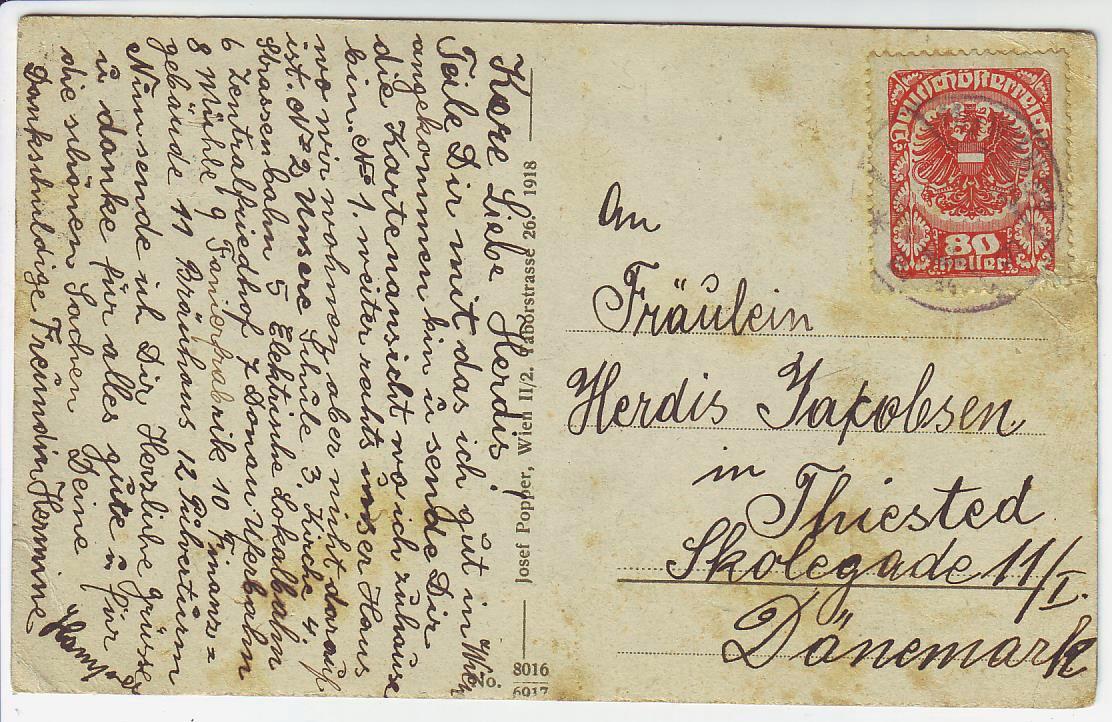 Kære Liebe Herdis!
Teile Dir mit das ich gut in Wien
angekommen bin u sende Dir
die Kartenansicht wo ich zuhause
bin. № 1. weiter rechts unser Haus
wo wir wohnen, aber nicht darauf
ist. № 2 Unsere Schule 3. Kirche 4.
Strassenbahn 5 Elektrische Lokalbahn
6 Zentralfriedhof 7 Donau Uferbahn
8 Mühle 9 Fanierfrabrik 10 Finanz=
gebäude 11 Bräuhaus 12 Pulverturm
Nun sende ich Dir Herzliche grüsse
u danke für alles gute u für
die schönen Sachen Deine
Dankschuldige Freundin Hermine
Josef Popper, Wien II/2. Taborstrasse 26. 1918
No. 8016
6917
Deutschösterreich
80
Heller
An
Fräulein
Herdis Jakobsen
in
Thiested
Skolegade 11/I.
Dänemark